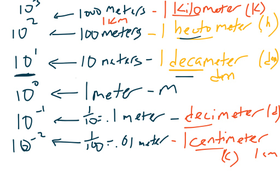 10⁻³ ← 1000 meters - 1 kilometer (K)
1 km
10² ← 100 meters - 1 hectometer (h)
10¹ ← 10 meters - 1 decameter (da
dm
10⁰ ← 1 meter - m
10⁻¹ ← 1/10 = .1 meter - decimeter (d)
10⁻² ← 1/100 = .01 meter - 1 centimeter
(c) 1 cm